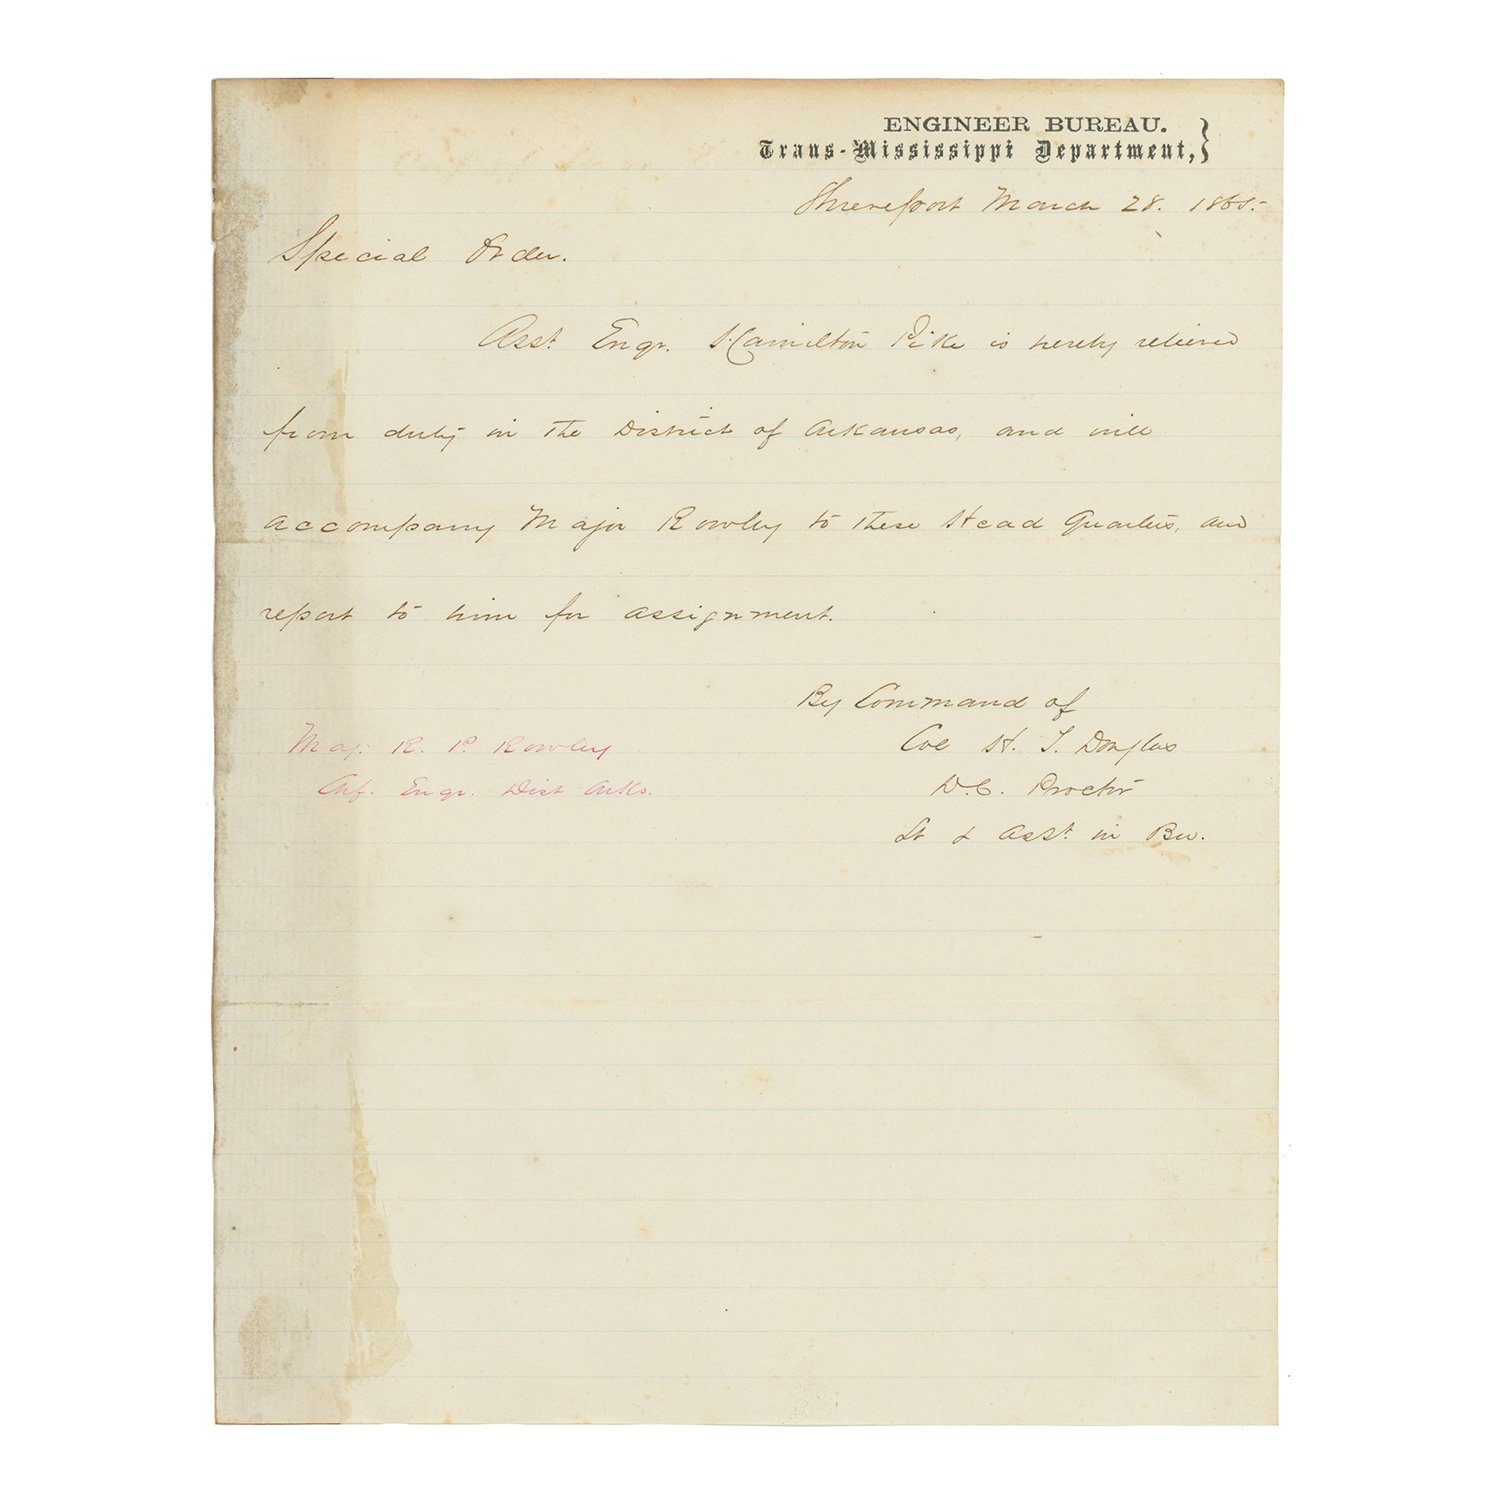 ENGINEER BUREAU.
Trans-Mississippi Department,
Shreveport March 28. 1865.
Special Order.
Asst. Engr. Hamilton Pike is hereby relieved
from duty in the District of Arkansas, and will
accompany Major Rowley to these Head Quarters, and
report to him for assignment.
By Command of
Col H. T. Douglas
D. C. Proctor
Lt & Asst. in Bu.
Maj. R. P. Rowley
Chf. Engr. Dist Arks.